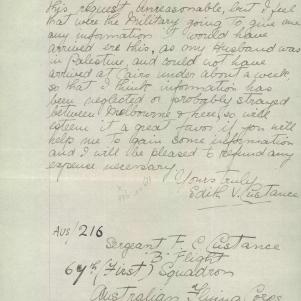 this request unreasonable, but I feel
that were the Military going to give me
any information it would have
arrived ere this, as my Husband was
in Palestine, and could not have
arrived at Cairo under about a week
so that I think information has
been neglected or probably strayed
between Melbourne & here, so will
esteem it a great favor if you will
help me to gain some information
and I will be pleased to refund any
expense necessary
Yours truly
Edith V. Custance
Aus/216
Sergeant F. C Custance
"B" Flight
67th (First) Squadron
Australian Flying Corps